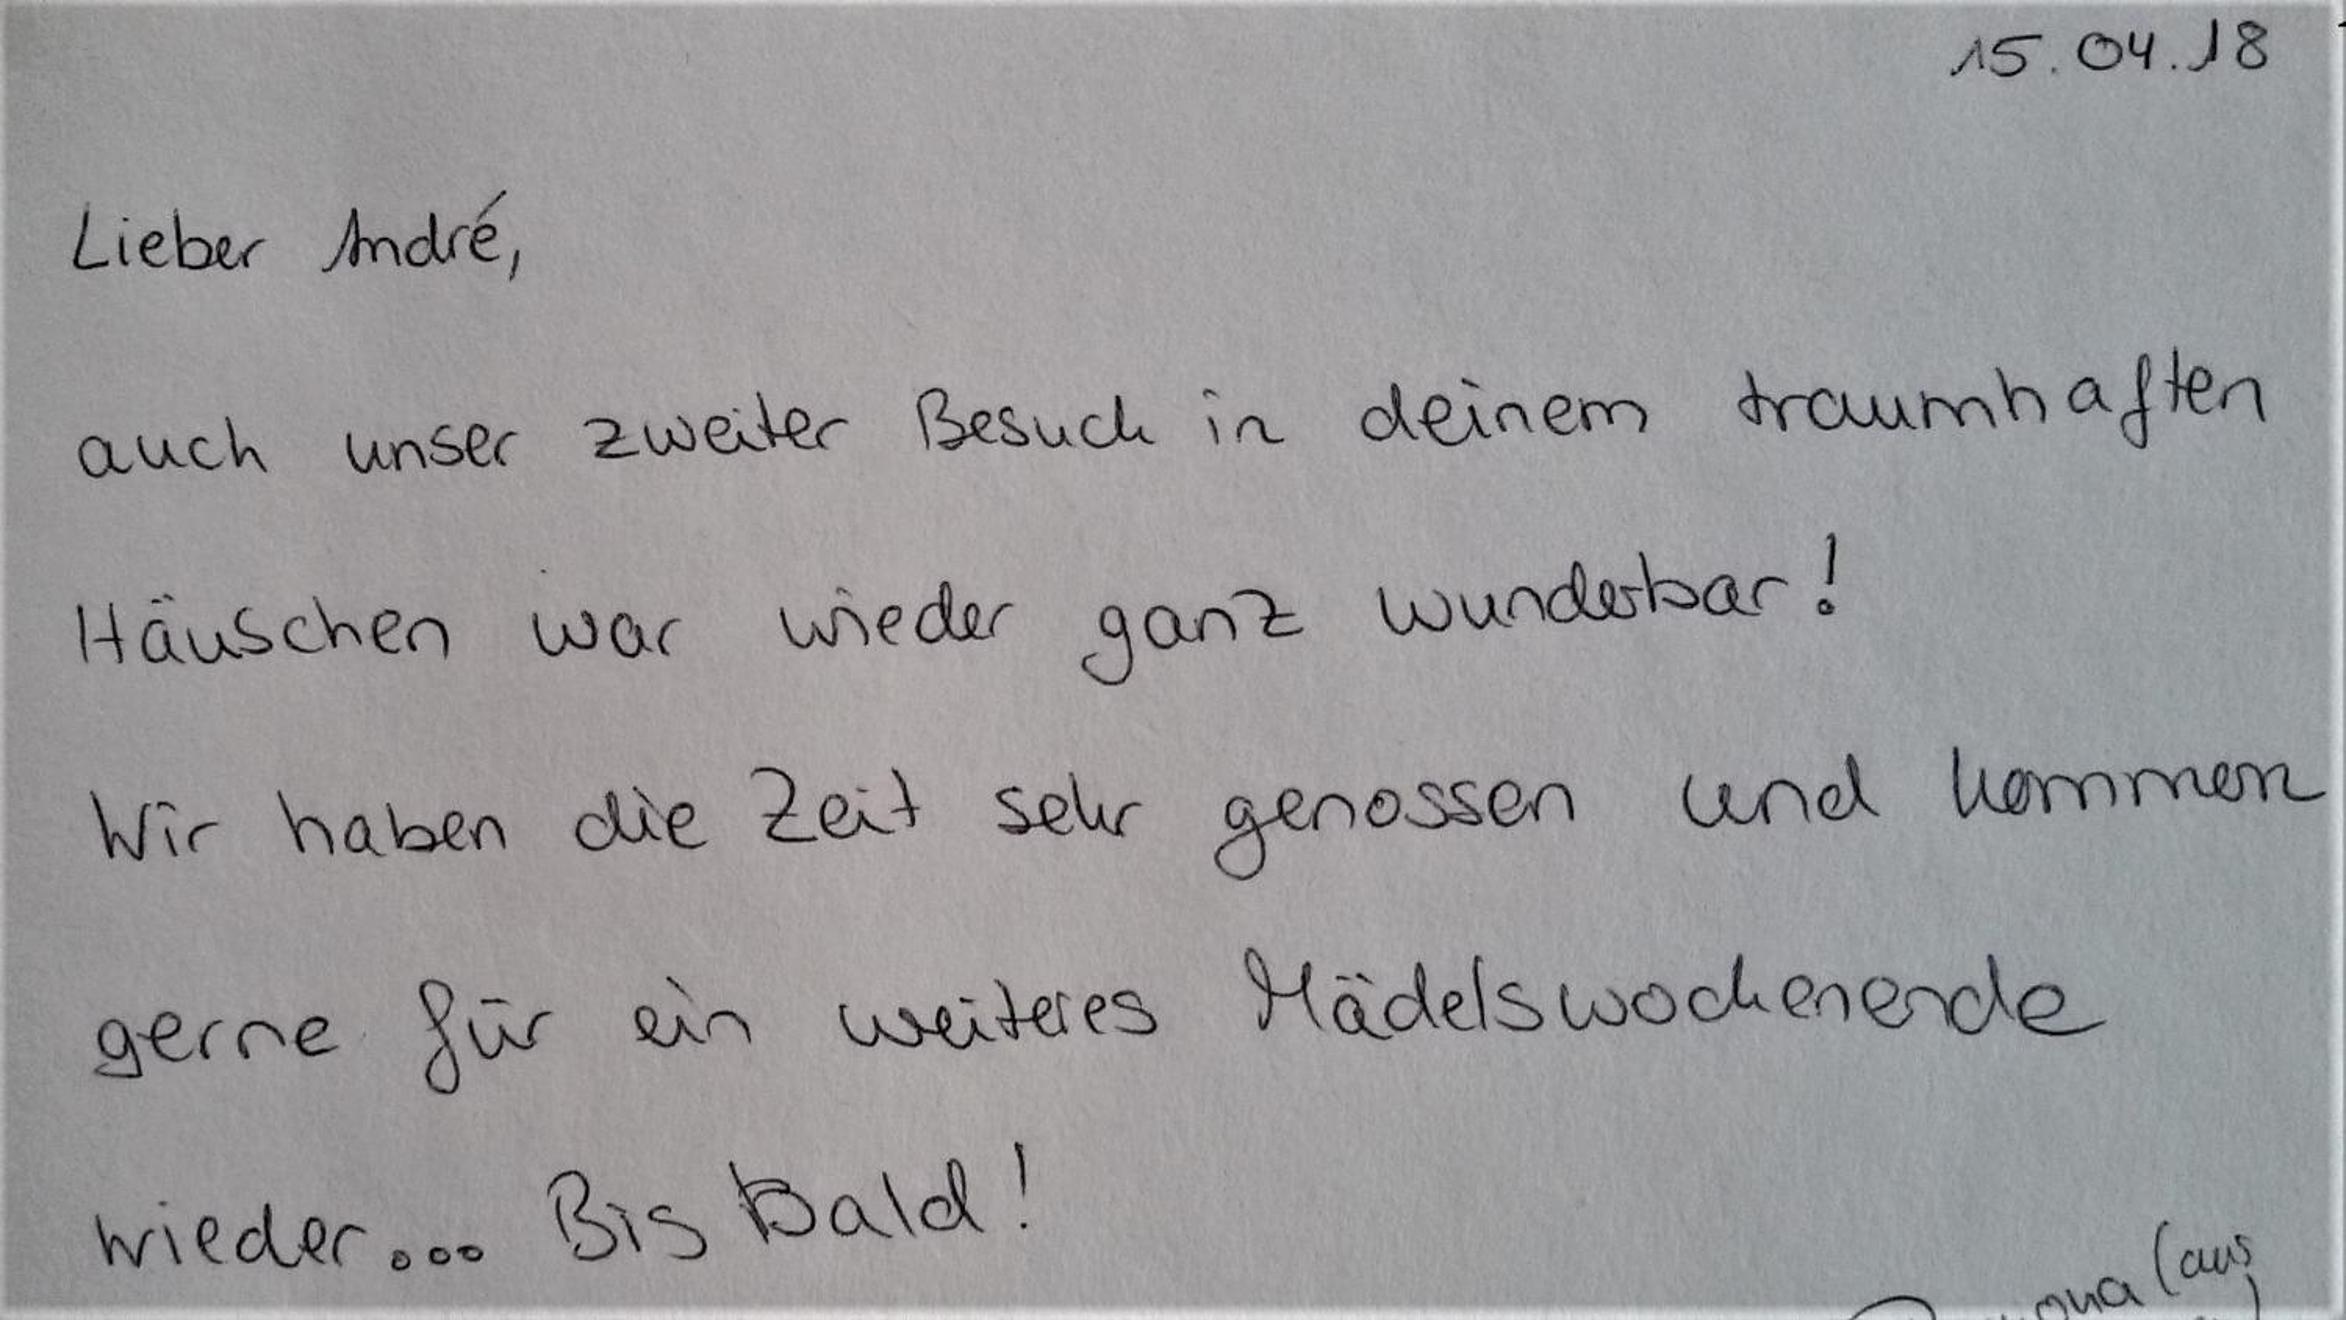 15.04.18
Lieber André,
auch unser zweiter Besuch in deinem traumhaften
Häuschen war wieder ganz wunderbar!
Wir haben die Zeit sehr genossen und kommen
gerne für ein weiteres Mädelswochenende
wieder... Bis Bald!
(aus